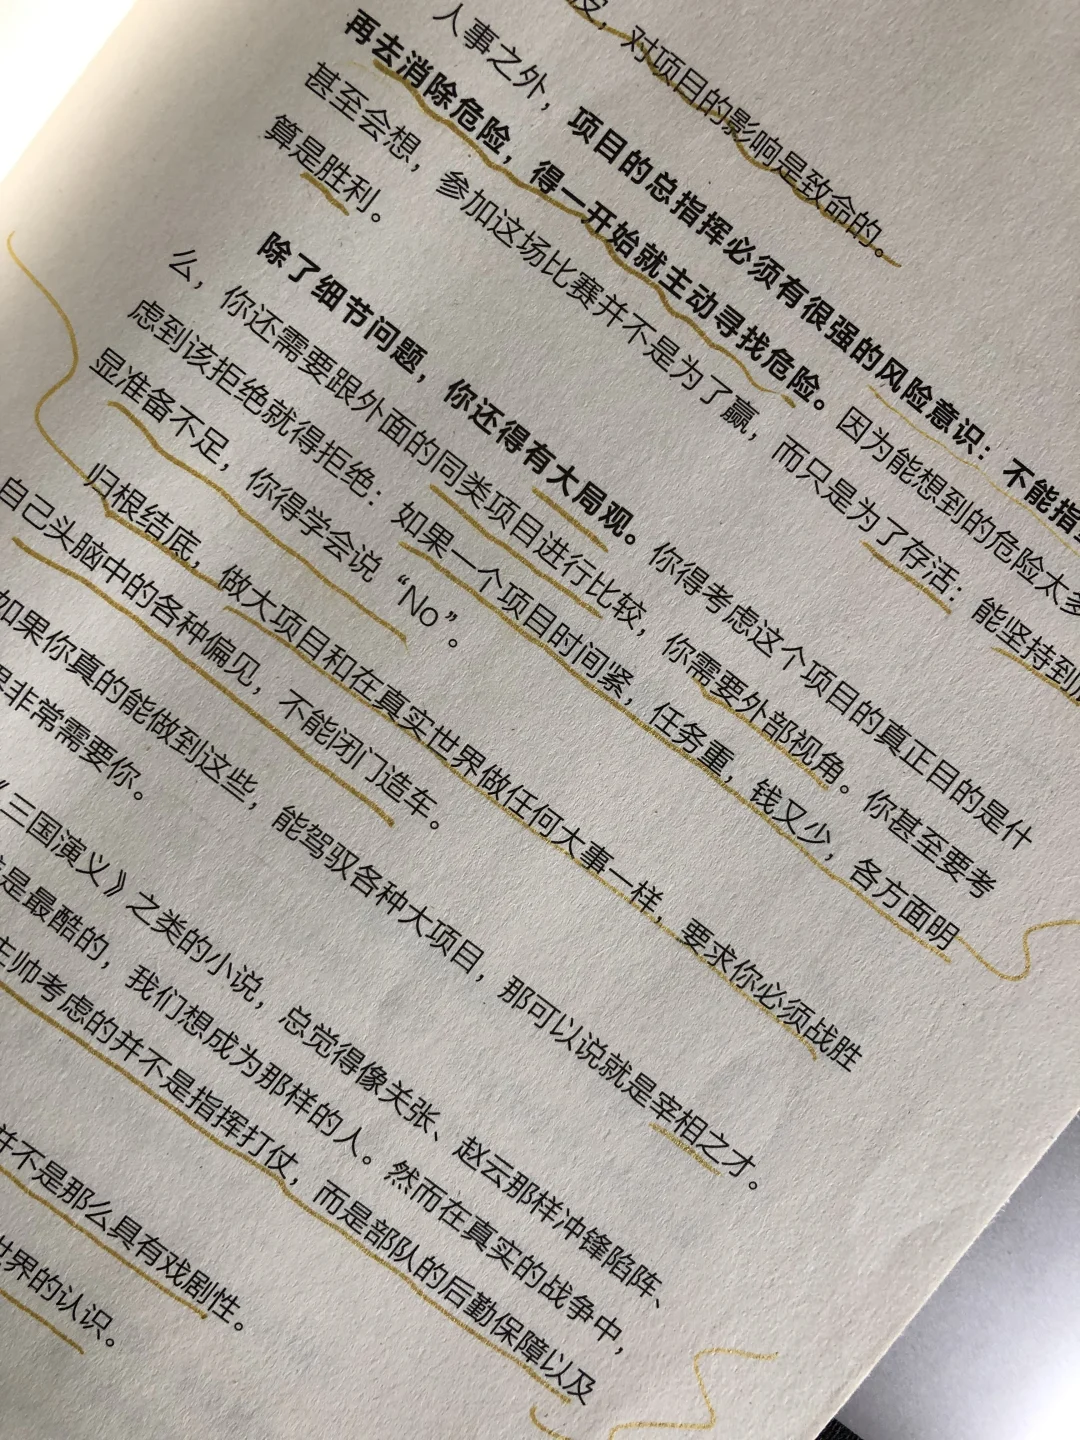 ，对项目的影响是致命的。
人事之外，项目的总指挥必须有很强的风险意识：不能指
再去消除危险，得一开始就主动寻找危险。因为能想到的危险太多
甚至会想，参加这场比赛并不是为了赢，而只是为了存活：能坚持到
算是胜利。
除了细节问题，你还得有大局观。你得考虑这个项目的真正目的是什
么，你还需要跟外面的同类项目进行比较，你需要外部视角。你甚至要考
虑到该拒绝就得拒绝：如果一个项目时间紧，任务重，钱又少，各方面明
显准备不足，你得学会说“No”。
归根结底，做大项目和在真实世界做任何大事一样，要求你必须战胜
自己头脑中的各种偏见，不能闭门造车。
如果你真的能做到这些，能驾驭各种大项目，那可以说就是宰相之才。
非常需要你。
《三国演义》之类的小说，总觉得像关张、赵云那样冲锋陷阵、
是最酷的，我们想成为那样的人。然而在真实的战争中，
主帅考虑的并不是指挥打仗，而是部队的后勤保障以及
并不是那么具有戏剧性。
世界的认识。